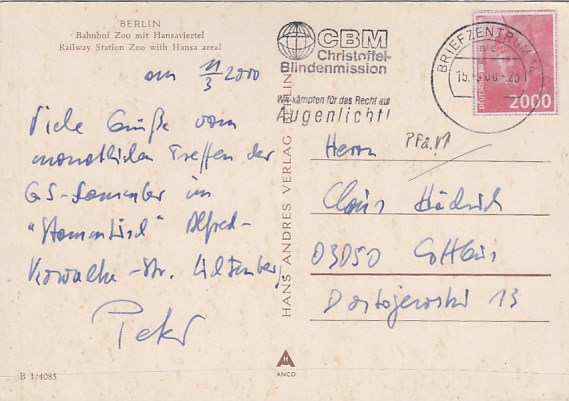 BERLIN
Bahnhof Zoo mit Hansaviertel
Railway Station Zoo with Hansa areal
am 11/3 2000
Viele Grüße vom
monatlichen Treffen der
GS-Sammler im
"Stammtisch" Alfred-
Kowalke-Str. Lichtenberg
Peter
B 1/4085
HANS ANDRES VERLAG BERLIN
H
ANCO
CBM
Christoffel-
Blindenmission
Wir kämpfen für das Recht auf
Augenlicht!
BRIEFZENTRUM
2000
Herrn
Claus
03050 Cottbus
Dostojewski 13